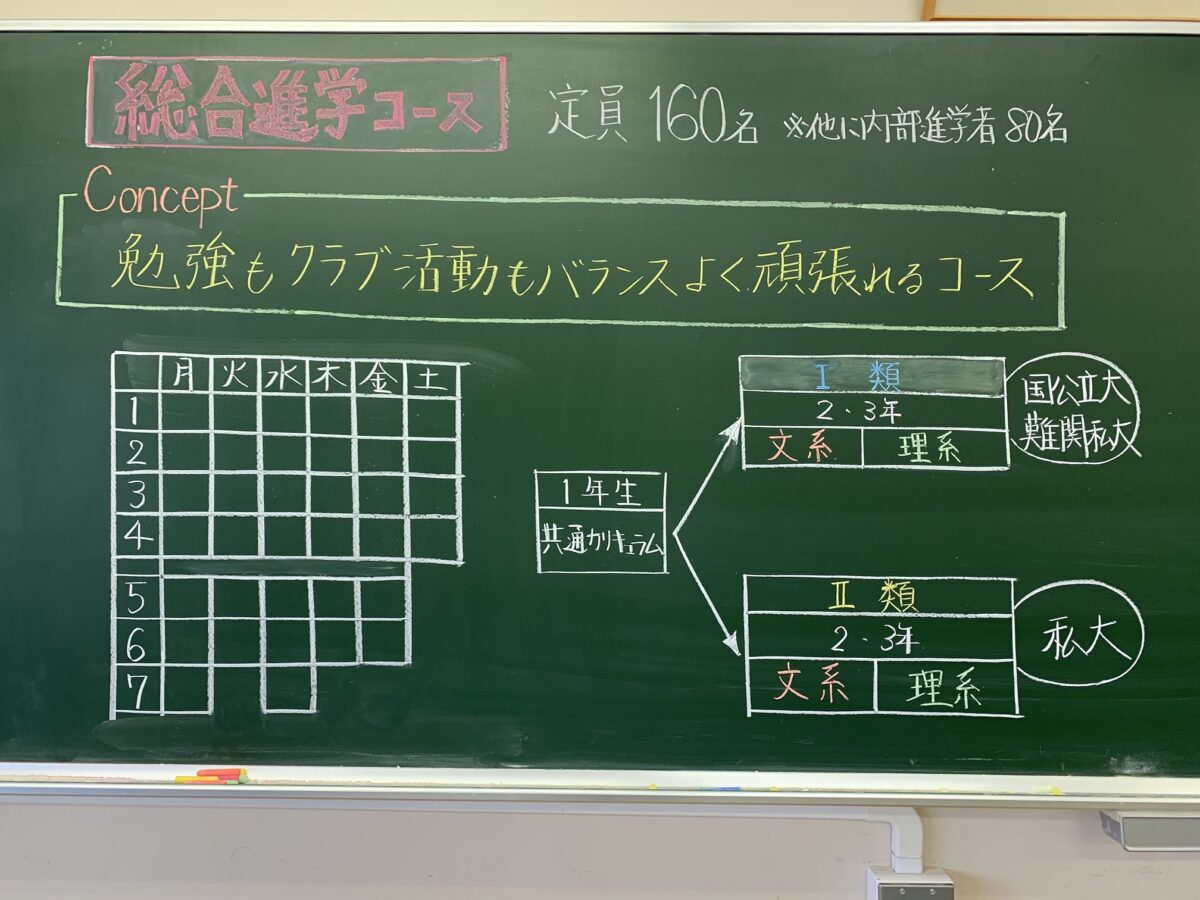 総合進学コース 定員 160名 ※他に内部進学者 80名
Concept
勉強もクラブ活動もバランスよく頑張れるコース
月 火 水 木 金 土
1
2
3
4
5
6
7
1年生
共通カリキュラム
I 類
2・3年
文系 理系
国公立大
難関私大
II 類
2・3年
文系 理系
私大